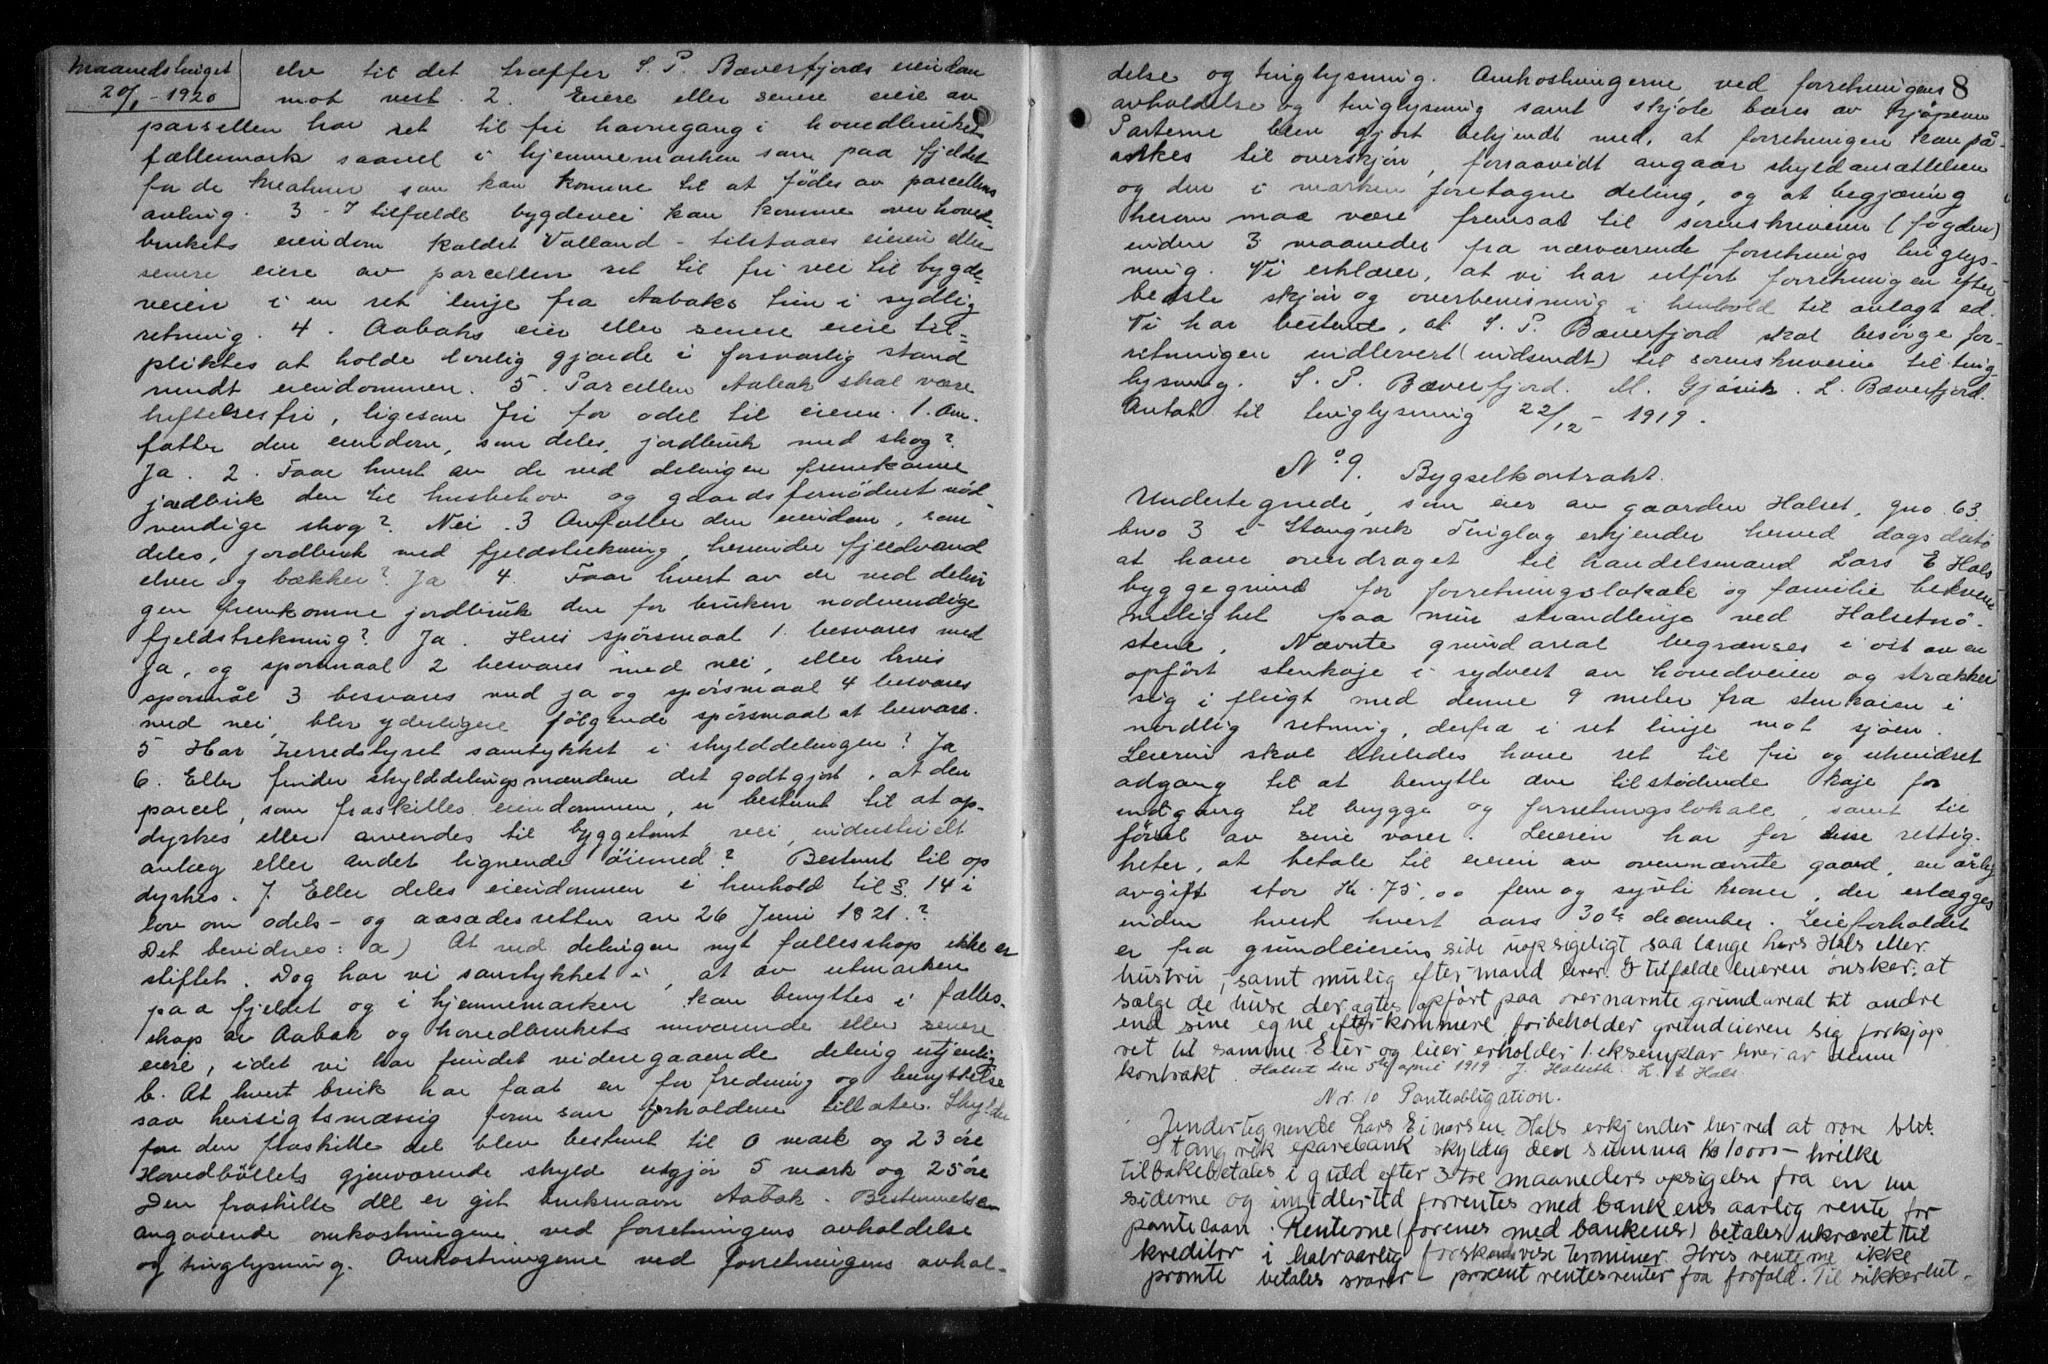 Maanedstinget
20/1 - 1920
elv til det træffer S. P. Bæverfjords eiendom
mot vest. 2. Eiere eller senere eiere av
parsellen har ret til fri havnegang i hovedbrukets
fællesmark saavel i hjemmemarken som paa fjeldet
for de kreaturer som kan komme til at fødes av parcellens
avling. 3 - I tilfælde bygdevei kan komme over hoved-
brukets eiendom kaldet Valland - tilstaaes eieren eller
senere eiere av parcellen ret til fri vei til bygde-
veien i en ret linje fra Aabaks tun i sydlig
retning. 4. Aabaks eier eller senere eiere til-
pliktes at holde lovlig gjærde i forsvarlig stand
rundt eiendommen. 5. Parcellen Aabak skal være
heftelsesfri, ligesom fri for odel til eieren. 1. Om-
fatter den eiendom, som deles, jordbruk med skog?
Ja. 2. Faar hvert av de ved delingen fremkomne
jordbruk den til husbehov og gaards fornødent nød-
vendige skog? Nei. 3 Omfatter den eiendom, som
deles, jordbruk med fjeldstrekning, herunder fjeldvand
elver og bækker? Ja 4. Faar hvert av de ved delin
gen fremkomne jordbruk den for bruken nødvendige
fjeldstrekning? Ja. Hvis spørsmaal 1. besvares med
ja, og spørsmaal 2 besvares med nei, eller hvis
spørsmål 3 besvares med ja og spørsmaal 4 besvares
med nei, blir yderligere følgende spørsmaal at besvare.
5 Har herredstyret samtykket i skylddelingen? Ja
6. Eller finder skylddelingsmændene det godtgjort, at den
parcel, som fraskilles eiendommen, er bestemt til at op-
dyrkes eller anvendes til byggetomt, vei, industrielt
anlæg eller andet lignende øiemed? Bestemt til op
dyrkes. 7. Eller deles eiendommen i henhold til § 14 i
lov om odels- og aasædesretten av 26 Juni 1821.?
Det bevidnes: a) At ved delingen nyt fællesskap ikke er
stiftet. Dog har vi samtykket i, at av utmarken
paa fjeldet og i hjemmemarken kan benyttes i fælles-
skap av Aabak og hovedbrukets nuværende eller senere
eiere, idet vi har fundet videregaaende deling utjenlig
b. At hvert bruk har faat en for fredning og benyttelse
saa hensigtsmæssig form som forholdene tillater. Skylden
for den fraskilte del blev bestemt til 0 mark og 23 øre
Hovedbøllets gjenværende skyld utgjør 5 mark og 25 øre
Den fraskilte del er git bruksnavn Aabak. Bestemmelsen
angaaende omkostningene ved forretningens avholdelse
og tinglysning. Omkostningerne ved forretningens avhol-
8
delse og tinglysning. Omkostningerne ved forretningens
avholdelse og tinglysning samt skjøte bæres av kjøperen
Parterne blev gjort bekjendt med, at forretningen kan på-
ankes til overskjøn, forsaavidt angaar skyldansættelsen
og den i marken foretagne deling, og at begjæring
herom maa være fremsat til sorenskriveren (fogden)
inden 3 maaneder fra nærværende forretnings tinglys-
ning. Vi erklærer, at vi har utført forretningen efter
bedste skjøn og overbevisning i henhold til avlagt ed.
Vi har bestemt, at S. P. Bæverfjord skal besørge for-
retningen indlevert (indsendt) til sorenskriveren til ting-
lysning. S. P. Bæverfjord. M. Gjøvik. L. Bæverfjord.
Antat til tinglysning 22/12 - 1919.
No. 9. Bygselkontrakt.
Undertegnede, som eier av gaarden Halset, gno 63.
bno 3 i Stangvik Tinglag erkjender herved dags dato
at have overdraget til handelsmand Lars E Hals
byggegrund for forretningslokale og familie bekvem
melighet paa min strandlinje ved Halsetnø-
stene. Nævnte grundareal begrænses i øst av en
opført stenkaje i sydvest av hovedveien og strækker
sig i flugt med denne 9 meter fra stenkaien i
nordlig retning, derfra i ret linje mot sjøen.
Leieren skal likeledes have ret til fri og uhindret
adgang til at benytte den tilstødende kaje for
indgang til brygge og forretningslokale, samt til
førsel av sine varer. Leieren har for disse rettig-
heter, at betale til eieren av ovennævnte gaard, en årlig
avgift stor Kr. 75,00 fem og sytti kroner, der erlægges
inden hvert hvert aars 30te december. Leieforholdet
er fra grundeierens side uopsigeligt saa længe Lars Hals eller
hustru, samt mulig eftermand lever. I tilfælde leieren ønsker at
sælge de huse der agtes opført paa overnævnte grundareal til andre
end sine egne efterkommere, forbeholder grundeieren sig forkjøp
ret til samme. Eier og leier erholder 1. eksemplar hver av denne
kontrakt Halset den 5te april 1919 J. Halseth. L. E Hals.
Nr. 10 Panteobligation.
Undertegnende Lars Einersen Hals erkjender herved at være blit
Stangvik sparebank skyldig den summa Kr 10000 - hvilke
tilbakebetales i guld efter 3 tre maaneders opsigelse fra en av
siderne og imidlertid forrentes med bankens aarlig rente for
pantelaan. Renterne (forenes med bankens) betales ukrævet til
kreditor i halvaarlig forskudsvise terminer. Hvis renterne ikke
promte betales svares - procent rentesrenter fra forfald. Til sikkerhet -